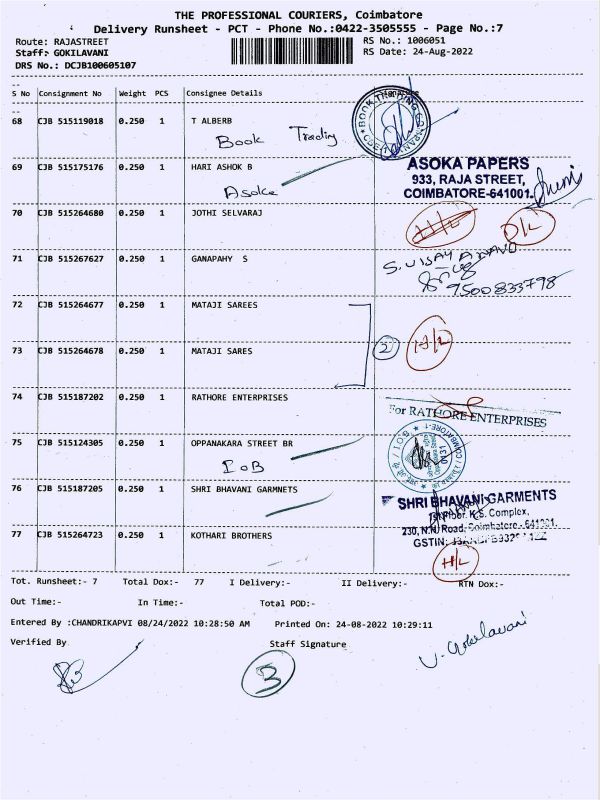 THE PROFESSIONAL COURIERS, Coimbatore
Delivery Runsheet - PCT - Phone No.:0422-3505555 - Page No.:7
Route: RAJASTREET
RS No.: 1006051
Staff: GOKILAVANI
RS Date: 24-Aug-2022
DRS No.: DCJB100605107
S No Consignment No Weight PCS Consignee Details Signature
68 CJB 515119018 0.250 1 T ALBERB
Book Trading
BOOK TRADING COMPANY
69 CJB 515175176 0.250 1 HARI ASHOK B
Asoka
ASOKA PAPERS
933, RAJA STREET,
COIMBATORE-641001.
70 CJB 515264680 0.250 1 JOTHI SELVARAJ
D/L
71 CJB 515267627 0.250 1 GANAPAHY S
9500833798
72 CJB 515264677 0.250 1 MATAJI SAREES
73 CJB 515264678 0.250 1 MATAJI SARES
2 H/L
74 CJB 515187202 0.250 1 RATHORE ENTERPRISES
For RATHORE ENTERPRISES
75 CJB 515124305 0.250 1 OPPANAKARA STREET BR
IOB
0431
76 CJB 515187205 0.250 1 SHRI BHAVANI GARMNETS
SHRI BHAVANI GARMENTS
1st Floor. K.S. Complex,
230, N.N. Road, Coimbatore - 641001.
GSTIN:
77 CJB 515264723 0.250 1 KOTHARI BROTHERS
H/L
Tot. Runsheet:- 7 Total Dox:- 77 I Delivery:- II Delivery:- RTN Dox:-
Out Time:- In Time:- Total POD:-
Entered By :CHANDRIKAPVI 08/24/2022 10:28:50 AM Printed On: 24-08-2022 10:29:11
Verified By Staff Signature
V. Gokilavani
3